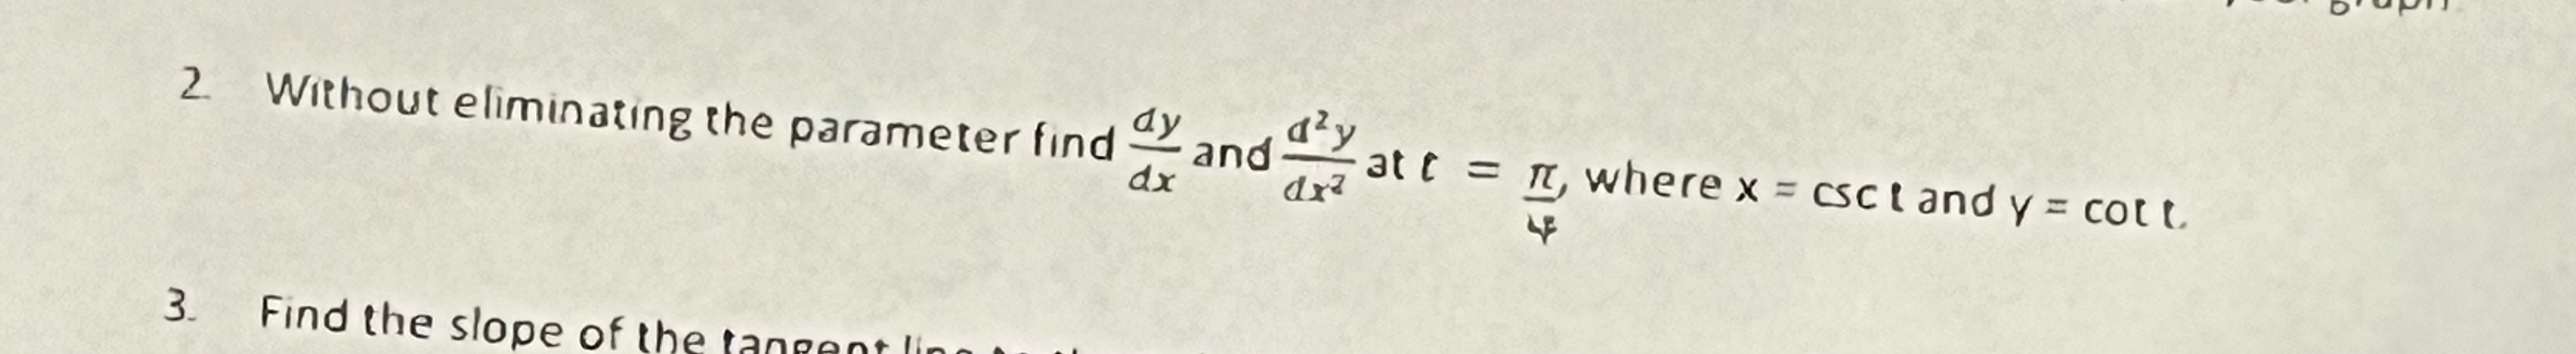 graph
2. Without eliminating the parameter find dy/dx and d²y/dx² at t = π/4, where x = csc t and y = cot t.
3. Find the slope of the tangent line to